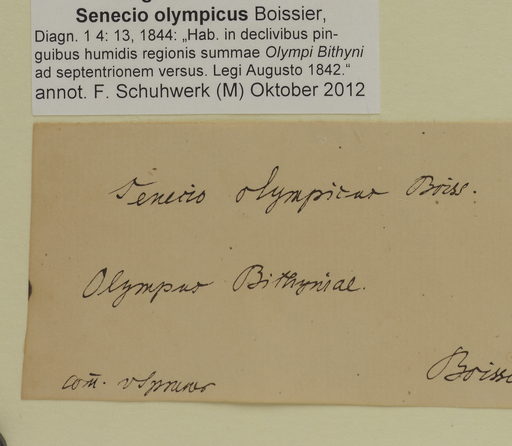 Senecio olympicus Boissier,
Diagn. 1 4: 13, 1844: „Hab. in declivibus pin-
guibus humidis regionis summae Olympi Bithyni
ad septentrionem versus. Legi Augusto 1842.“
annot. F. Schuhwerk (M) Oktober 2012
Senecio olympicus Boiss.
Olympus Bithyniae.
Boiss
com̄. v Spruner